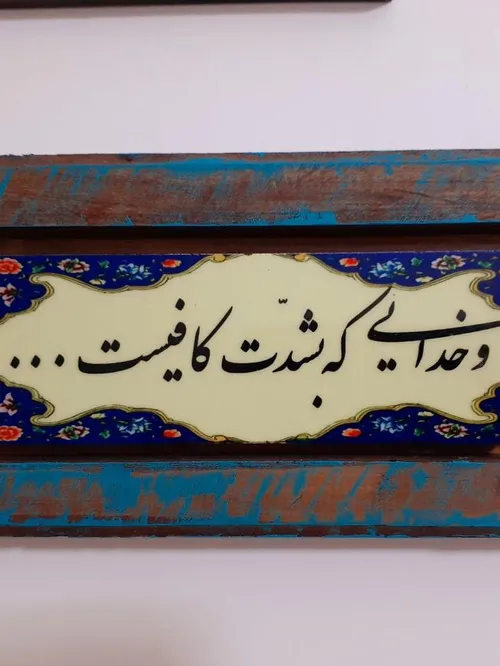 و خدایی که بشدّت کافیست ...